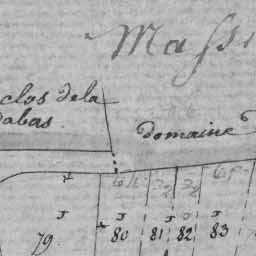 Mass
clos de la
dabas.
domaine
79. 80 81 82 83